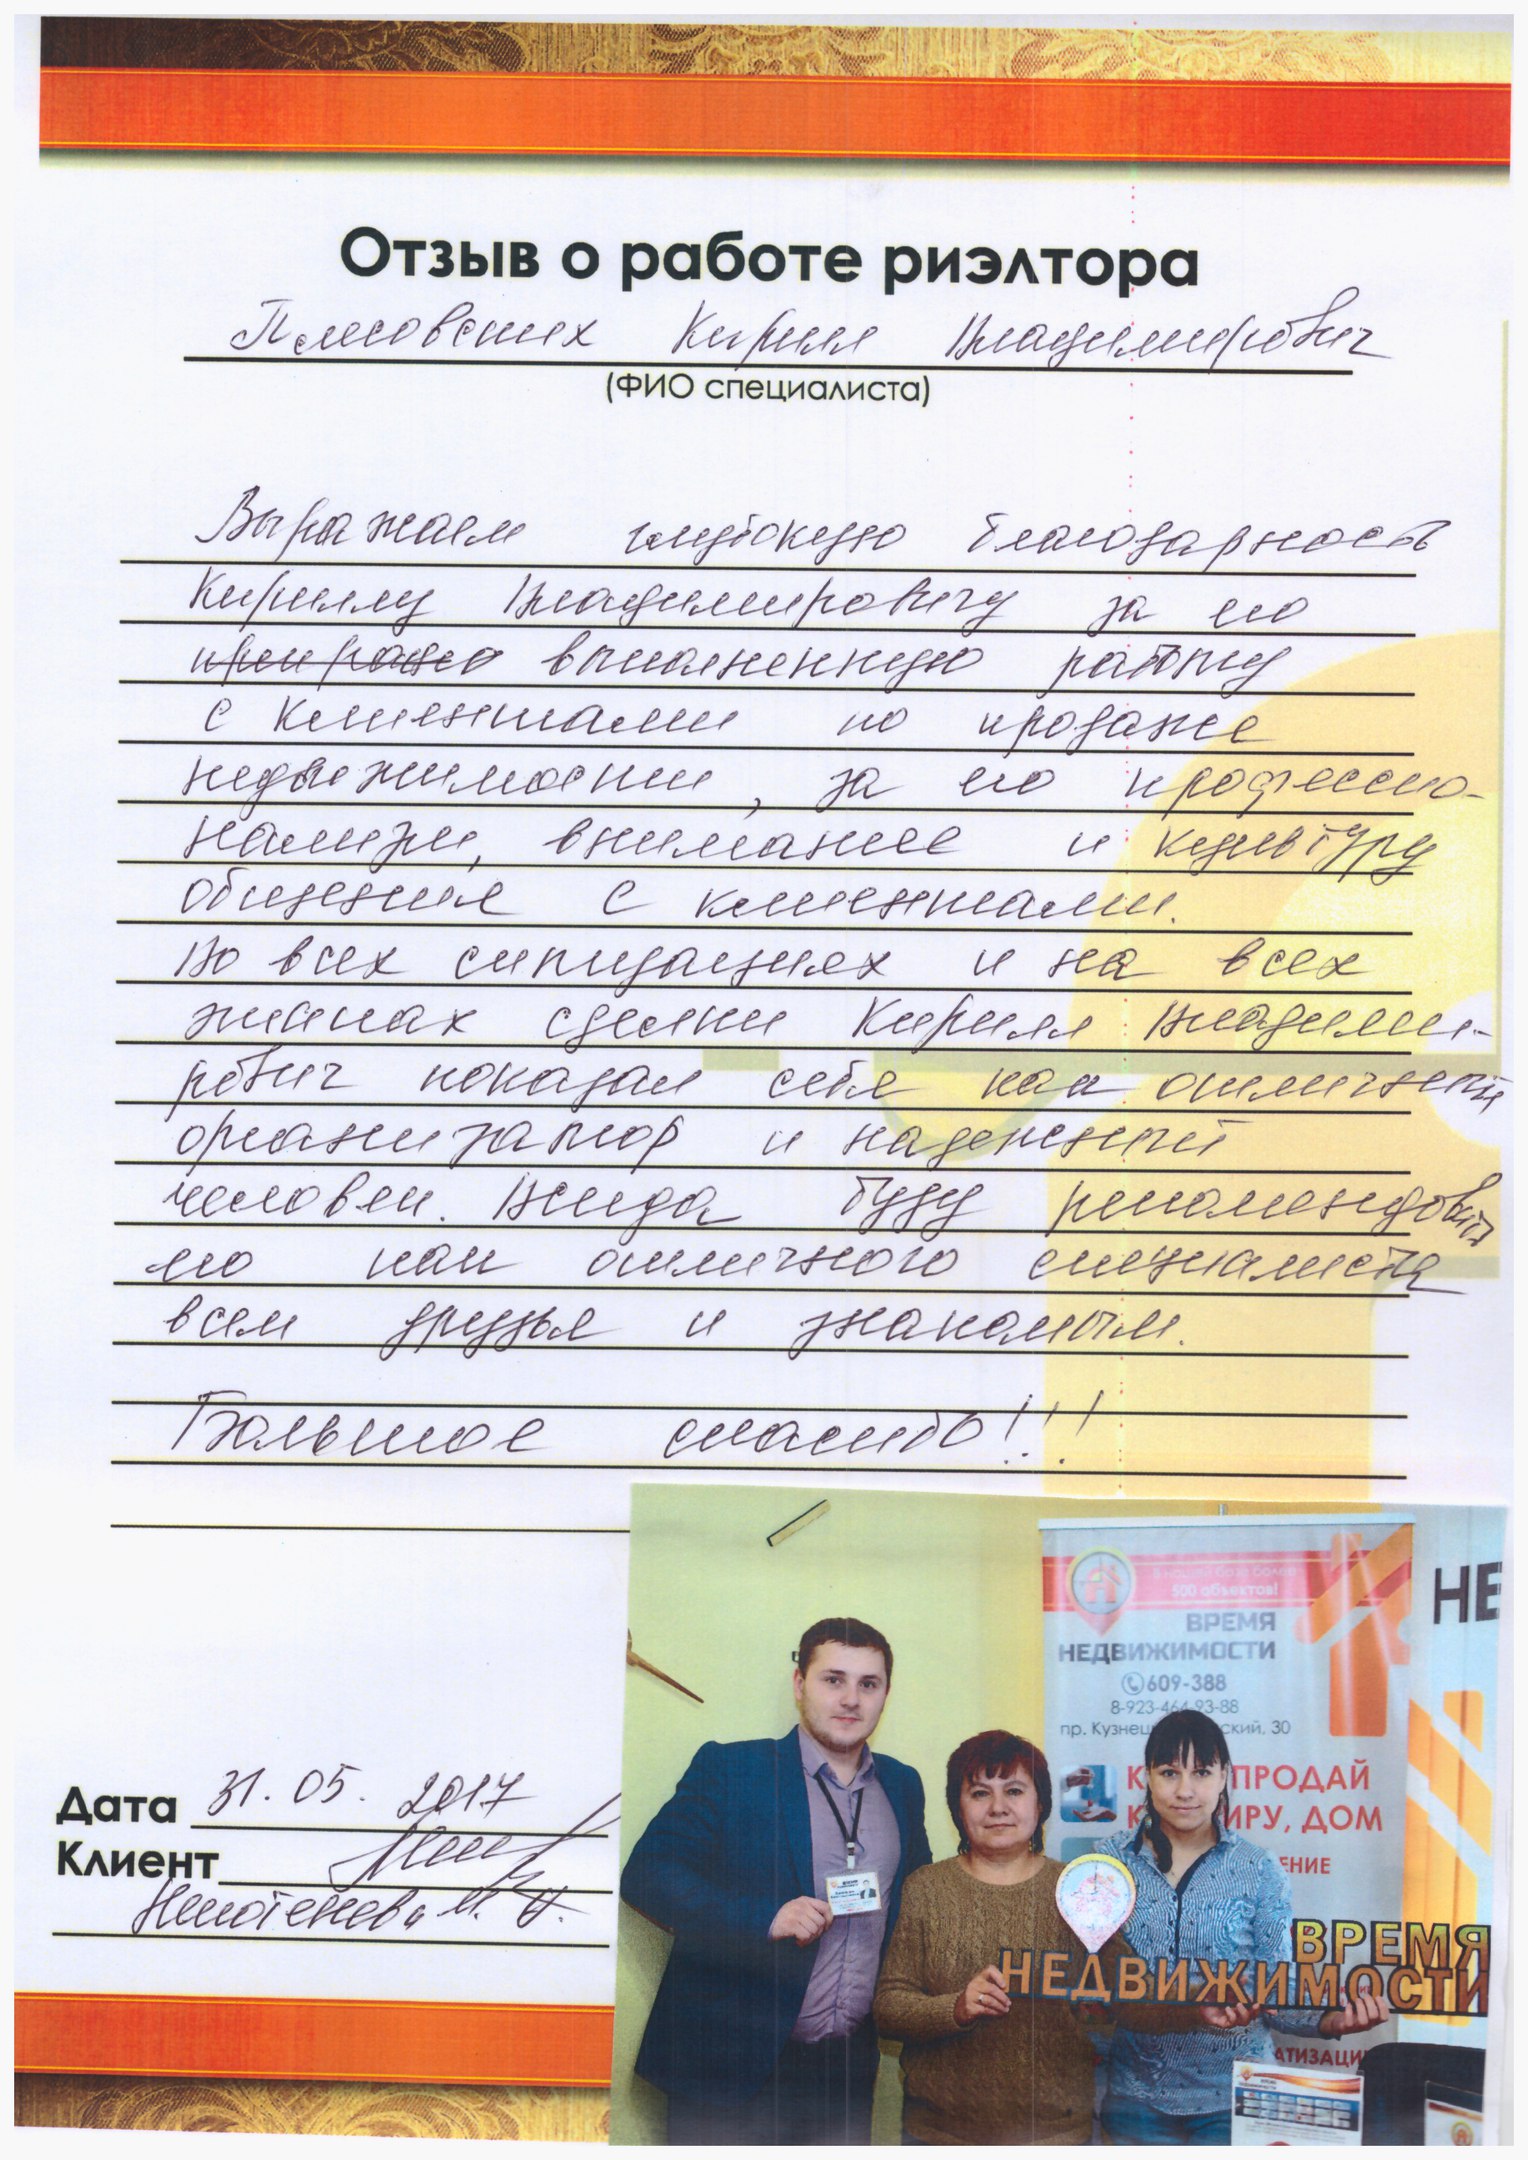 Отзыв о работе риэлтора
Плесовских Кирилл Владимирович
(ФИО специалиста)
Выражаем глубокую благодарность
Кириллу Владимировичу за его
выполненную работу
с клиентами по продаже
недвижимости, за его профессио-
нализм, внимание и культуру
общения с клиентами.
Во всех ситуациях и на всех
этапах сделки Кирилл Владими-
рович показал себя как отличный
организатор и надежный
человек. Всегда буду рекомендовать
его как отличного специалиста
всем друзья и знакомым.
Большое спасибо!!!
Дата 31.05.2017
Клиент
В нашей базе более
500 объектов!
ВРЕМЯ
НЕДВИЖИМОСТИ
609-388
8-923-464-93-88
пр. Кузнец ский, 30
К ПРОДАЙ
К ИРУ, ДОМ
ЕНИЕ
НЕ
ВРЕМЯ
НЕДВИЖИМОСТИ
АТИЗАЦИ